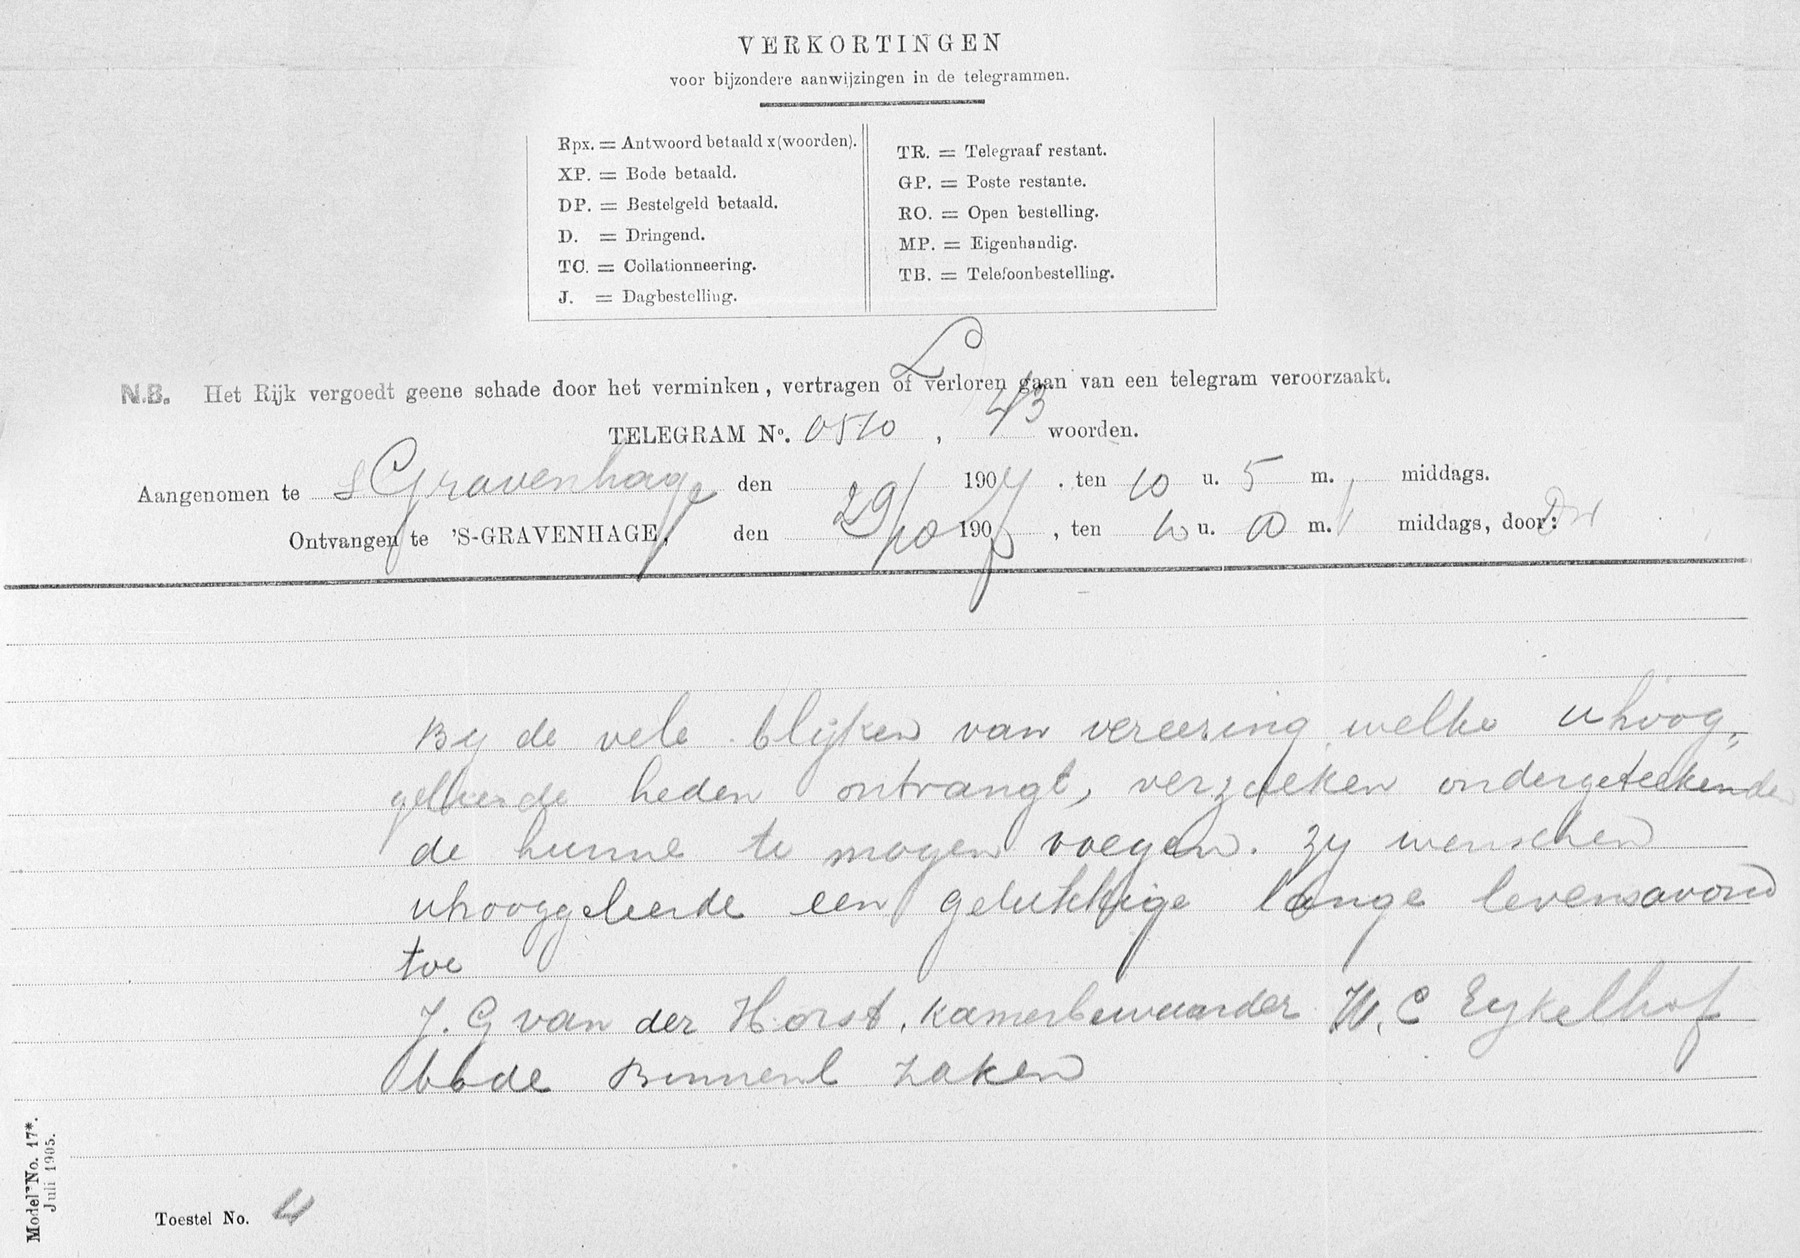 VERKORTINGEN
voor bijzondere aanwijzingen in de telegrammen.
Rpx. = Antwoord betaald x (woorden).
XP. = Bode betaald.
DP. = Bestelgeld betaald.
D. = Dringend.
TC. = Collationneering.
J. = Dagbestelling.
TR. = Telegraaf restant.
GP. = Poste restante.
RO. = Open bestelling.
MP. = Eigenhandig.
TB. = Telefoonbestelling.
N.B. Het Rijk vergoedt geene schade door het verminken, vertragen of verloren gaan van een telegram veroorzaakt.
TELEGRAM No. 0510, 43 woorden.
Aangenomen te sGravenhage den 29/10 1907. ten 10 u. 5 m. middags.
Ontvangen te 'S-GRAVENHAGE, den 1907, ten 10 u. m. middags, door:
By de vele blijken van vereering welke uhoog,
geleerde heden ontvangt, verzoeken ondergeteekenden
de hunne te mogen voegen. Zy wenschen
uhooggeleerde een gelukkige lange levensavond
toe
J. G van der Horst, kamerbewaarder W. C Eykelhof
bode Binnenl zaken
Model No. 17*.
Juli 1905.
Toestel No. 4